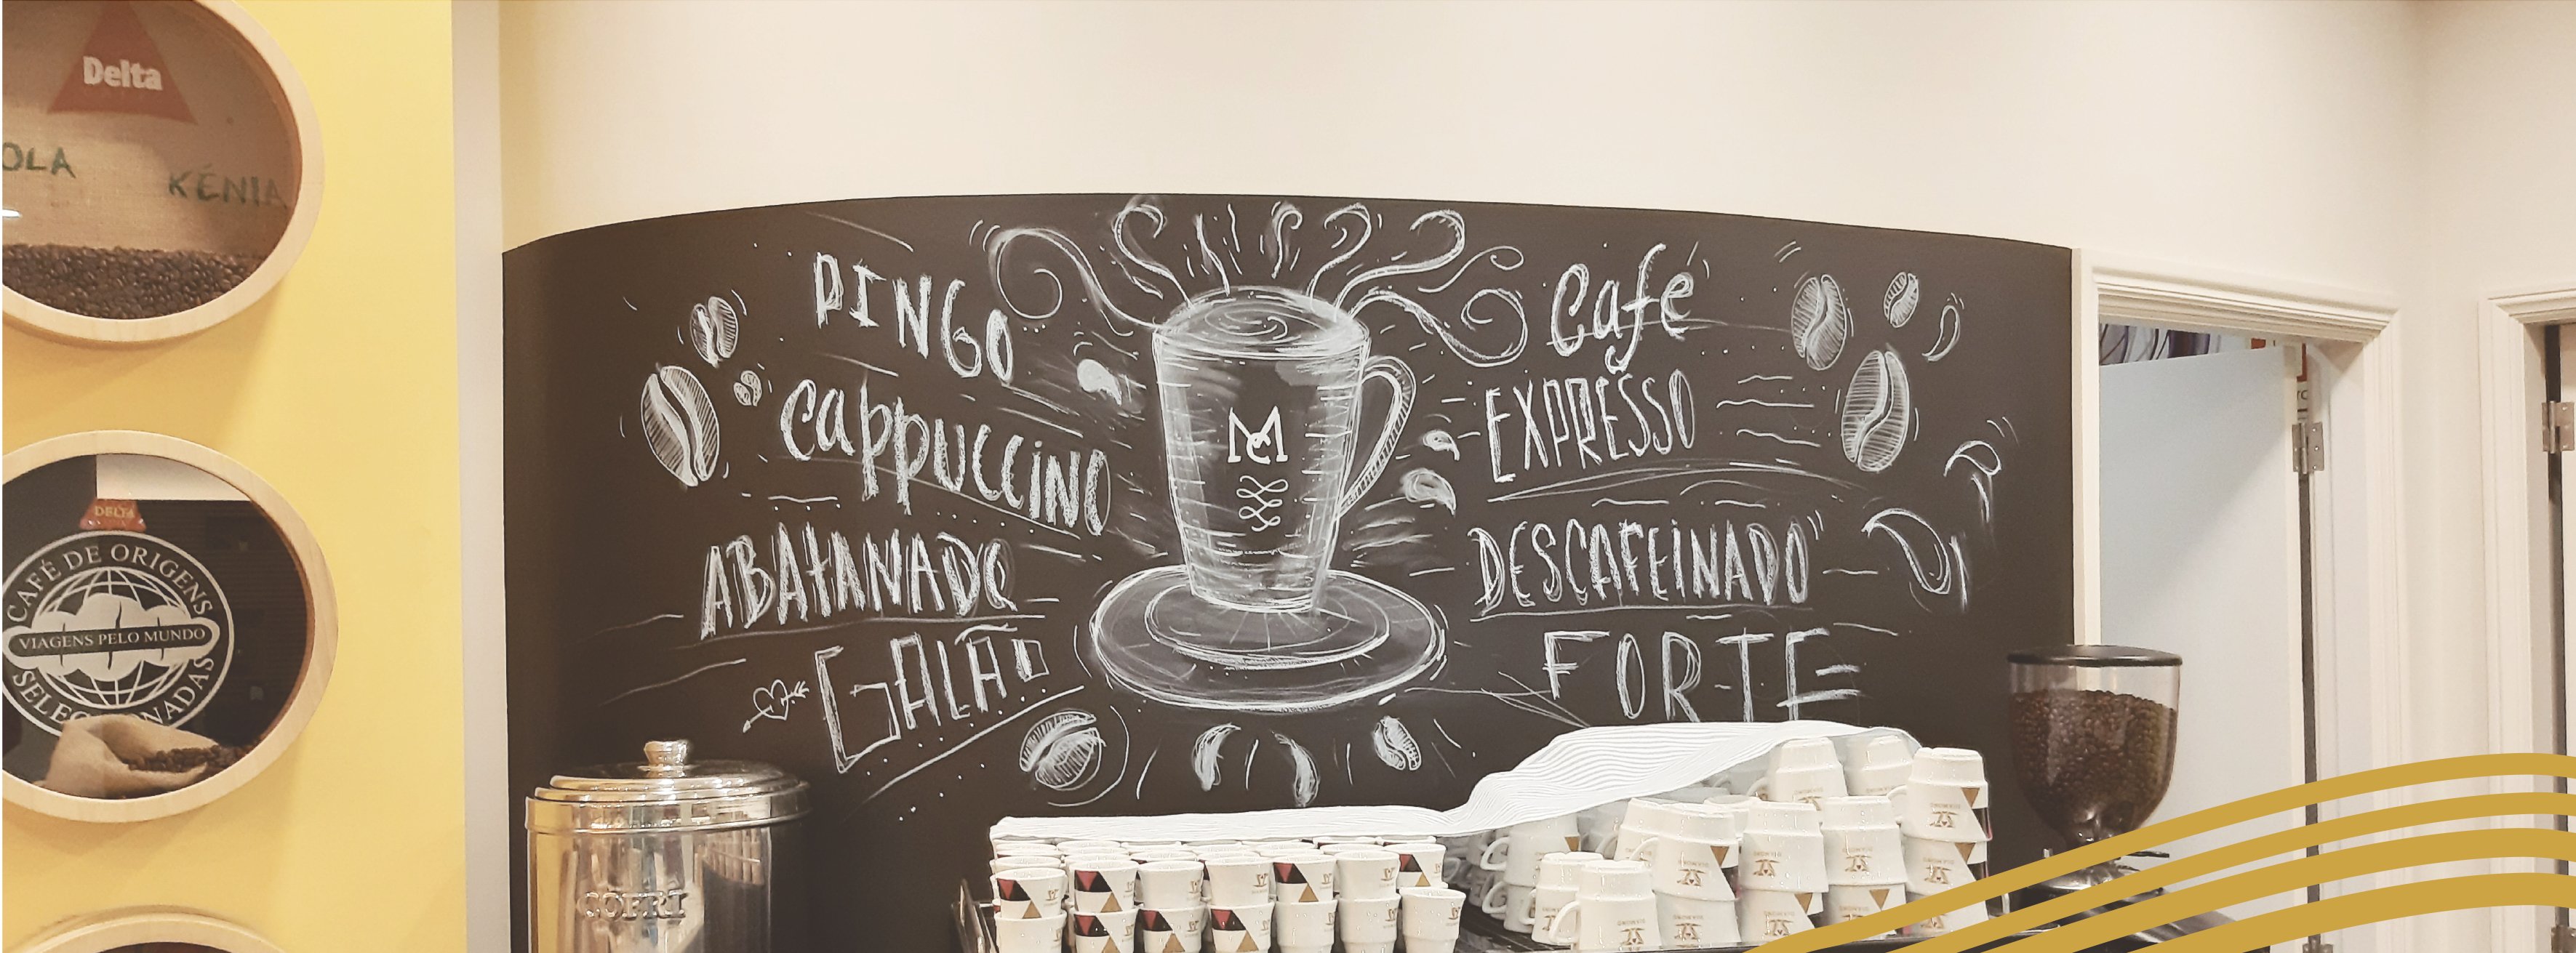 Delta
OLA
KÉNIA
DELTA
CAFÉ DE ORIGENS
VIAGENS PELO MUNDO
PINGO
cappuccino
ABATANADO
GALÃO
MC
Café
EXPRESSO
DESCAFEINADO
FORTE